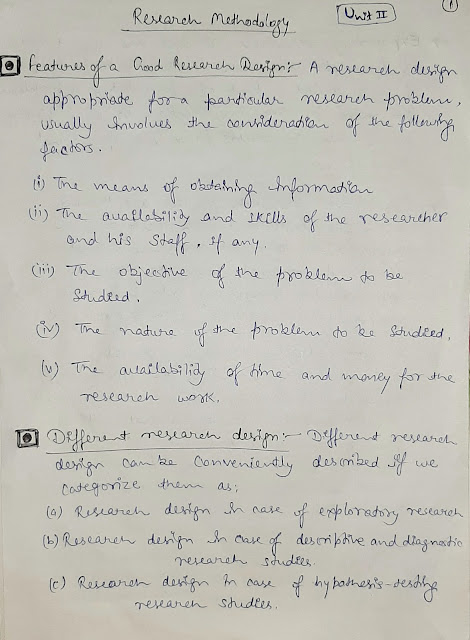 Research Methodology
Unit II
1
Features of a Good Research Design:- A research design
appropriate for a particular research problem,
usually involves the consideration of the following
factors.
(i) The means of obtaining information
(ii) The availability and skills of the researcher
and his staff, if any.
(iii) The objective of the problem to be
studied.
(iv) The nature of the problem to be studied.
(v) The availability of time and money for the
research work.
Different research design:- Different research
design can be conveniently described if we
categorize them as:
(a) Research design in case of exploratory research
(b) Research design in case of descriptive and diagnostic
research studies.
(c) Research design in case of hypothesis-testing
research studies.